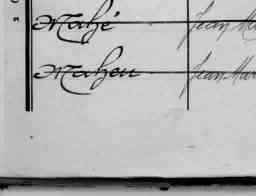 Mahé Jean Ma
Maheu Jean Mar